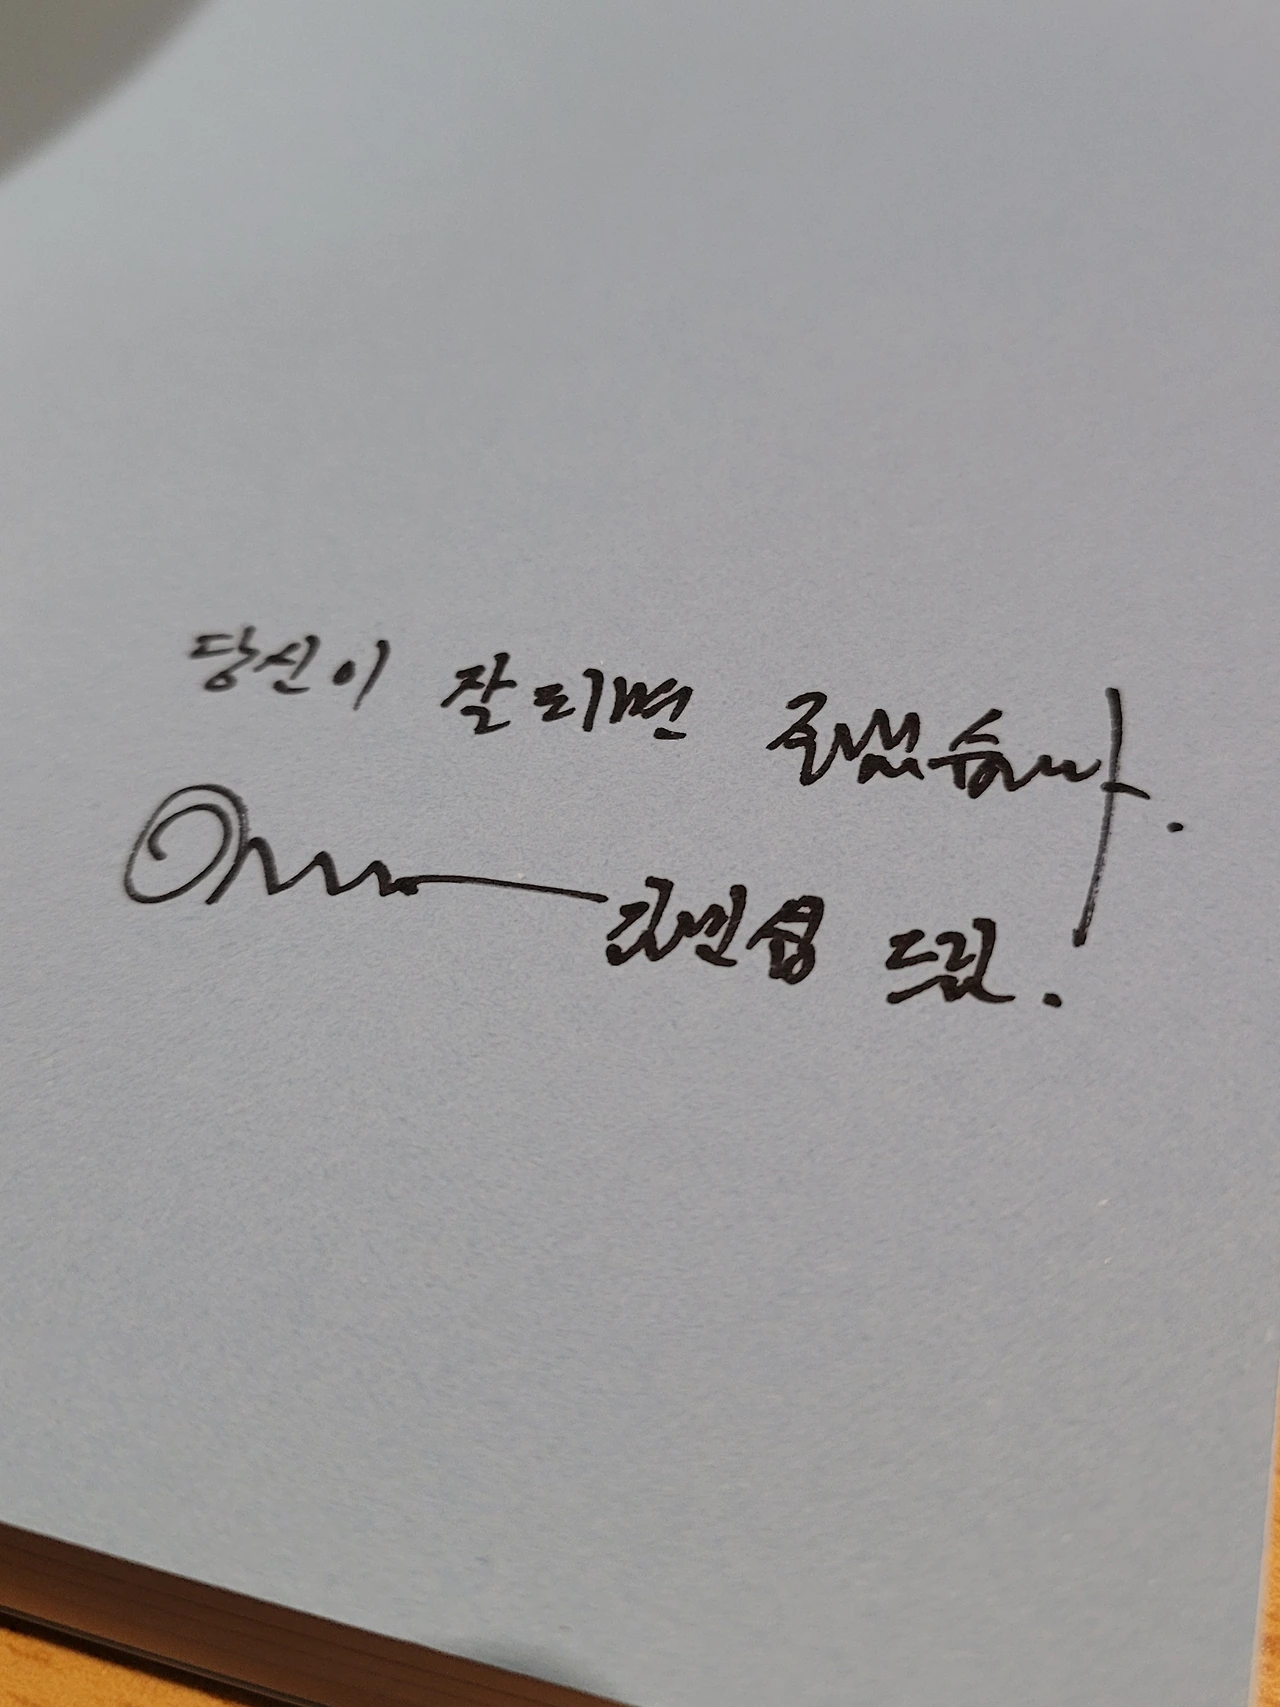 당신이 잘 되면 좋겠습니다.
김민섭 드림.